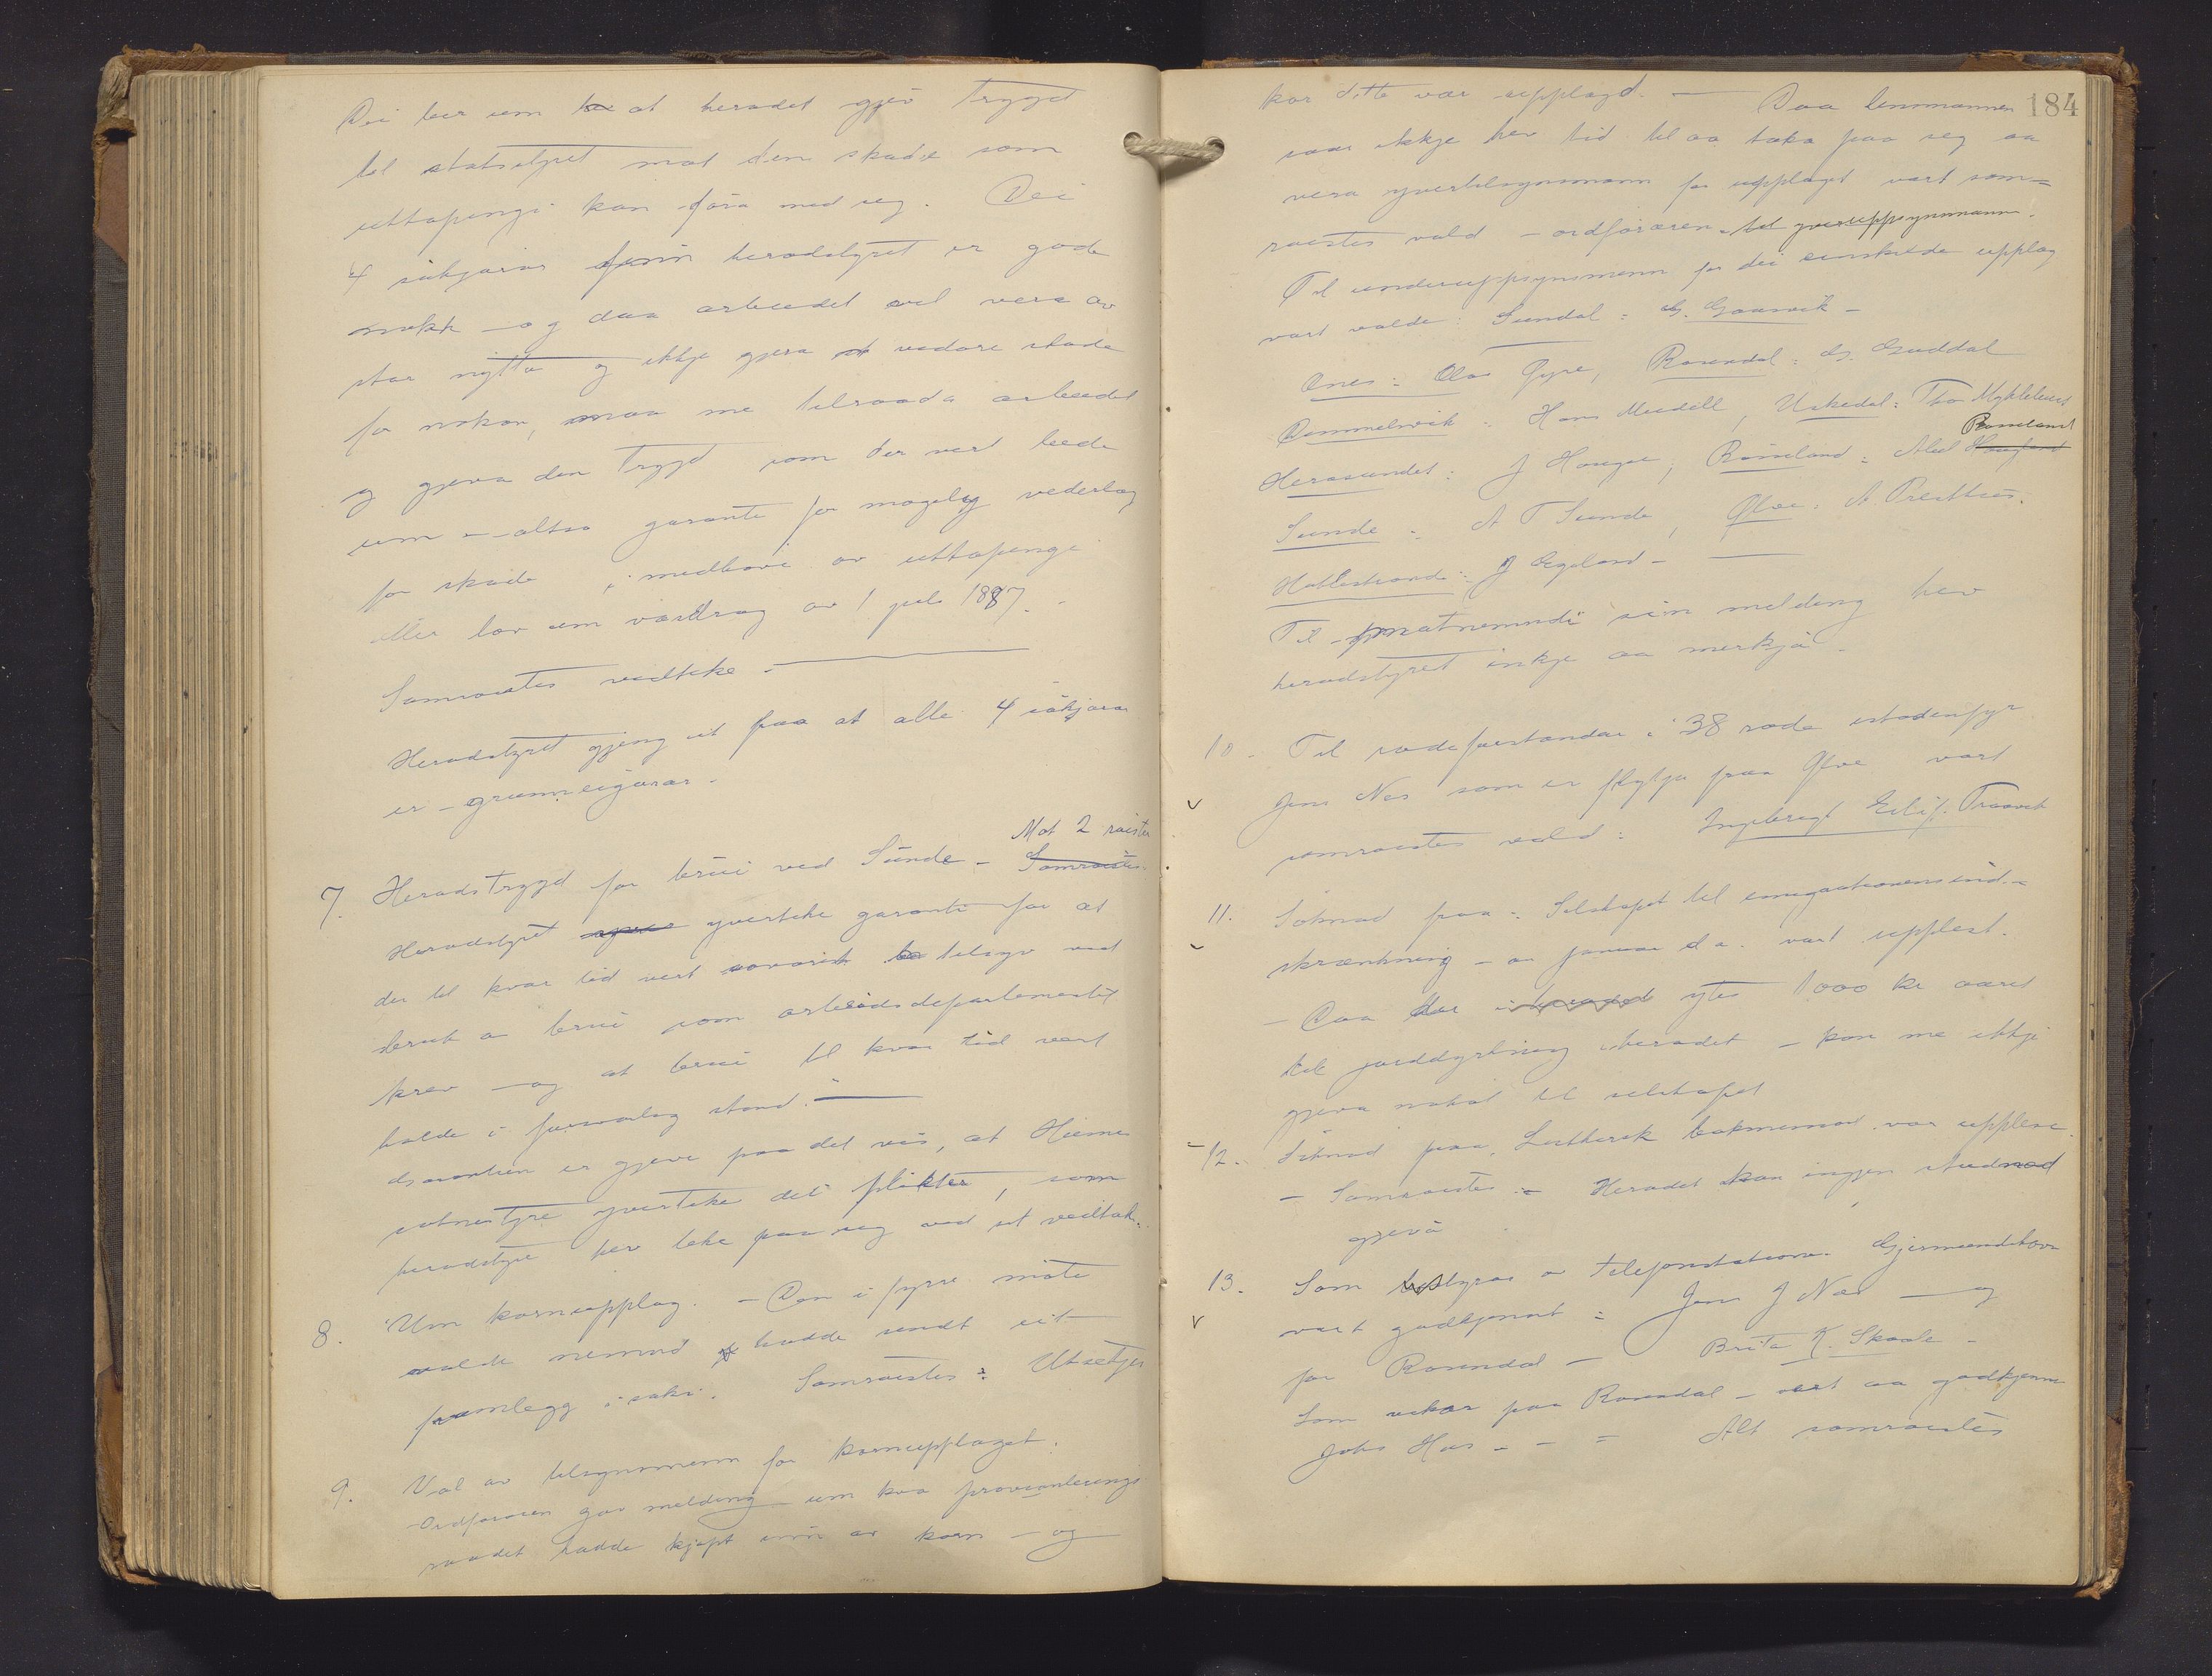 Dei ber um at heradet gjev trygd
til statstyret mot den skade som
uttapingi kan föra med seg. Dei
4 sökjarar finn heradstyret er gode
nokk – og daa arbeidet vil vera av
stor nytta og ikkje gjera vidare skade
for nokon, maa me tilraada arbeidet
og gjeva den trygd som der vert bede
um – altso garanti for mogeleg vederlag
for skade i medhøve av uttapingi
etter lov um vasdrag av 1 juli 1887. –
Samrøistes vedteke. –
Heradstyret gjeng ut fraa at alle 4 sökjarar
er – grunneigarar. –
Mot 2 røister
7. Heradstrygd for brui ved Sunde – Samrøistes
Heradstyret yverteke garanti for at
der til kvar tid vert tilsyn ved
bruk av brui som arbeidsdepartementet
krev – og at brui til kvar tid vert
halde i forsvarleg stand. –
Garantien er gjeve paa det vis, at Heime
sotnestyre yverteke dei plikter, som
heradstyre hev teke paa seg ved sit vedtak.
8. Um kornupplag. – Den i fyrre møte
valde nemnd hadde sendt eit
framlegg i saki. Samrøistes: Utsetjes
9. Val av tilsynsmenn for kornupplaget.
Ordføraren gav melding um kva provianterings
raadet hadde kjøpt inn av korn – og
184
kor dette var upplagd. – Daa lensmannen
ikkje hev tid til aa taka paa seg aa
vera yvertilsynsmann for upplaget vart sam=
røistes vald – ordføraren til yveruppsynsmann.
Til underuppsynsmenn for dei einskilde upplag
vart valde: Sundal: G. Gaarvik –
Ænes: Olav Øyre, Rosendal: G. Guddal
Dimmelsvik: Hans Meidell, Uskedal: Thor Myklebust
Rosseland
Herøsundet: J Haugse, Røiseland: Abel
Sunde: A T Sunde, Ølve: A Presthus.
Hatlestrand: J Egeland –
Til – matnemndi sin melding hev
heradstyret inkje aa merkja –
10. Til rodeforstandar i 38 rode istadenfyr
Jens Nes som er flytja fraa Ølve vart
samrøistes vald: Ingebregt Eilif. Traavik
11. Söknad fraa: Selskapet til emigrationens ind-
skrænkning – av januar d a. vart upplest.
– Daa der ytes 1000 kr aaret
til jorddyrking i heradet – kan me ikkje
gjeva nokot til selskapet
12. Söknad fraa Luthersk bokmisjon var upplese.
– Samrøistes: – Heradet kan ingjen studnad
gjeva
13. Som bestyrar av telefonstationen Gjermundshavn
vart godkjent: Jens J Nes – og
for Rosendal – Brita K. Skaale –
Som vikar paa Rosendal – vert aa godkjenna
Johs Hus – – = Alt samrøistes